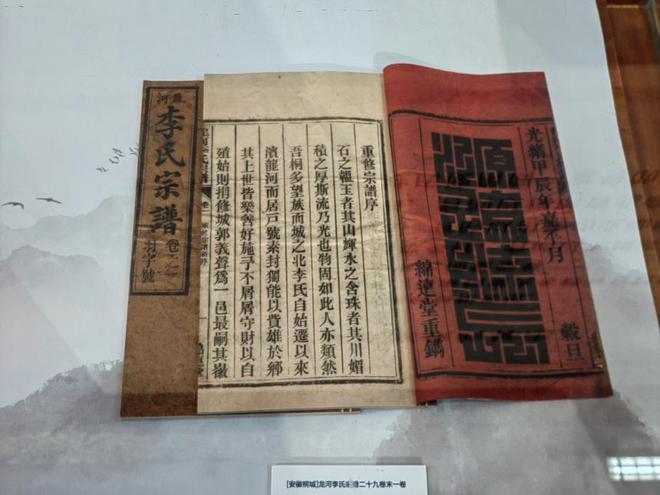 龍河
李氏宗譜
卷之一
羽字號
重修宗譜序
石之韞玉者其山輝水之含珠者其川媚
積之厚斯流乃光也物固如此人亦類然
吾桐多望族而城之北李氏自始遷以來
濱龍河而居戸號素封獨能以貲雄於鄉
其上世皆樂善好施予不屑屑守財以自
殖始則捐修城郭義聲爲一邑最嗣其徽
光緒甲辰年嘉平月
穀旦
綿遠堂重鐫
[安徽桐城]龙河李氏二十九卷末一卷